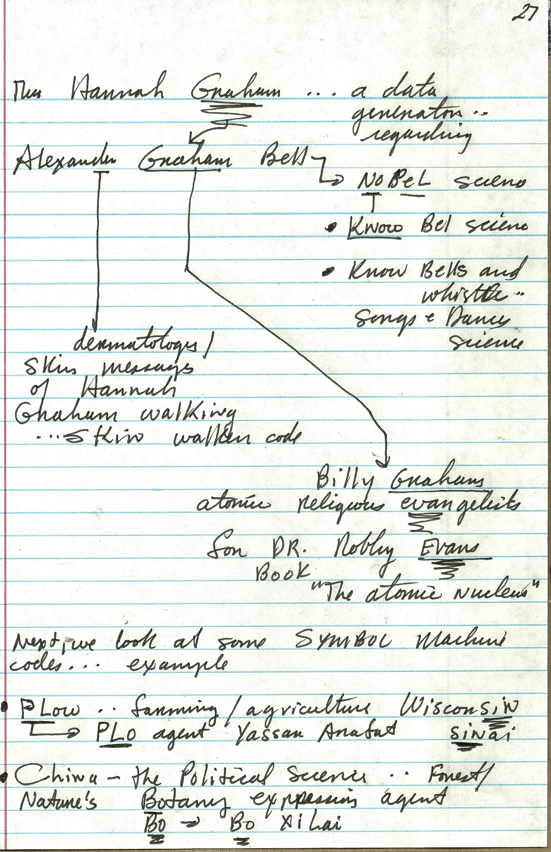 27
Thus Hannah Graham ... a data
generator..
regarding
Alexander Graham Bell
NOBEL science
• Know Bel science
• Know Bells and
whistle..
Songs & Dance
science
dermatology /
skin messages
of Hannah
Graham walking
... skin walker code
Billy Grahams
atomic religious evangelists
for DR. Robley Evans
BOOK
"The atomic nucleus"
Next, we look at some SYMBOL Machine
codes... example
• PLOW .. farming / agriculture WisconSIN
PLO agent Yassar Arafat SINai
• China - the Political Science .. Forest /
Nature's Botany expression agent
Bo → Bo XiLai